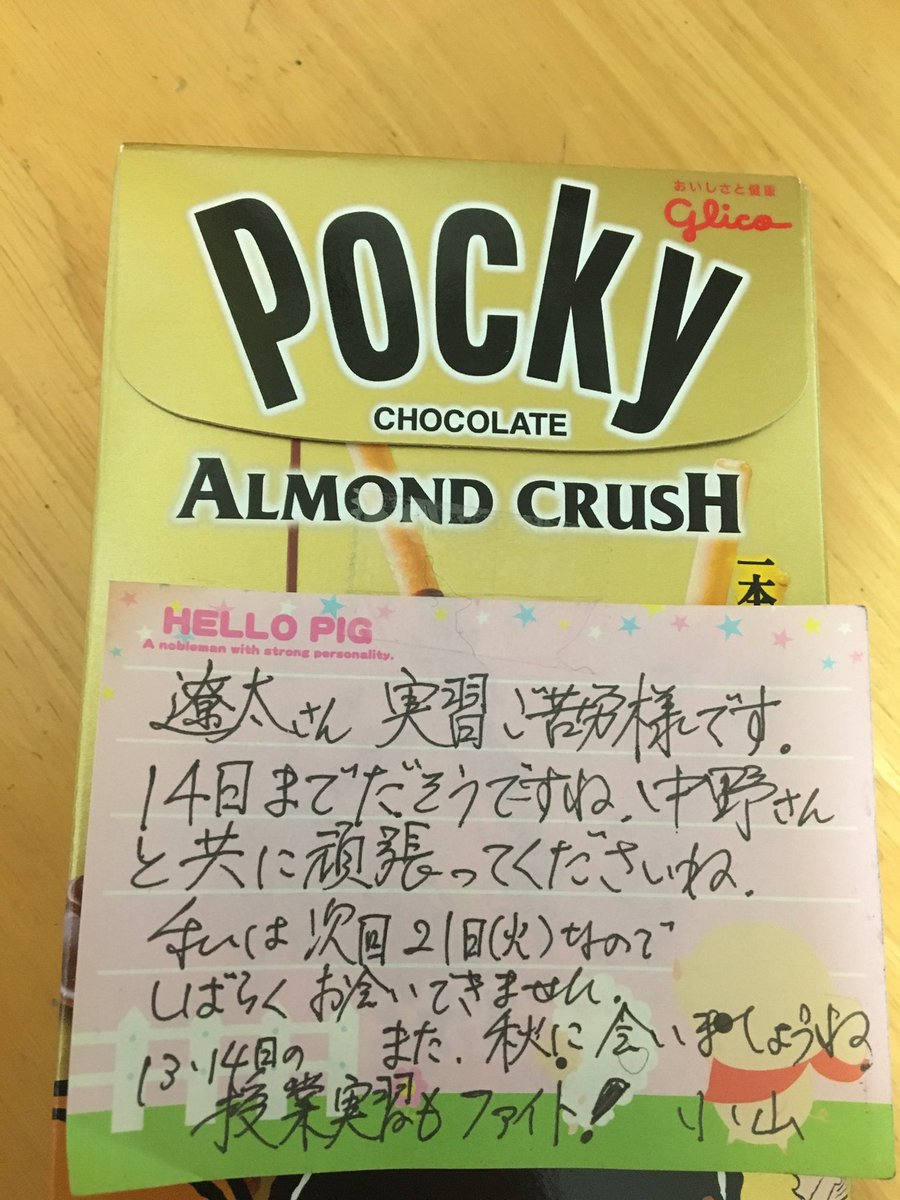 おいしさと健康
glico
Pocky
CHOCOLATE
ALMOND CRUSH
一本
HELLO PIG
A nobleman with strong personality.
遼太さん 実習ご苦労様です。
14日までだそうですね、中野さん
と共に頑張ってくださいね。
私は次回21日(火)なので
しばらくお会いできません。
また、秋に会いましょうね
13・14日の
授業実習もファイト!
小山